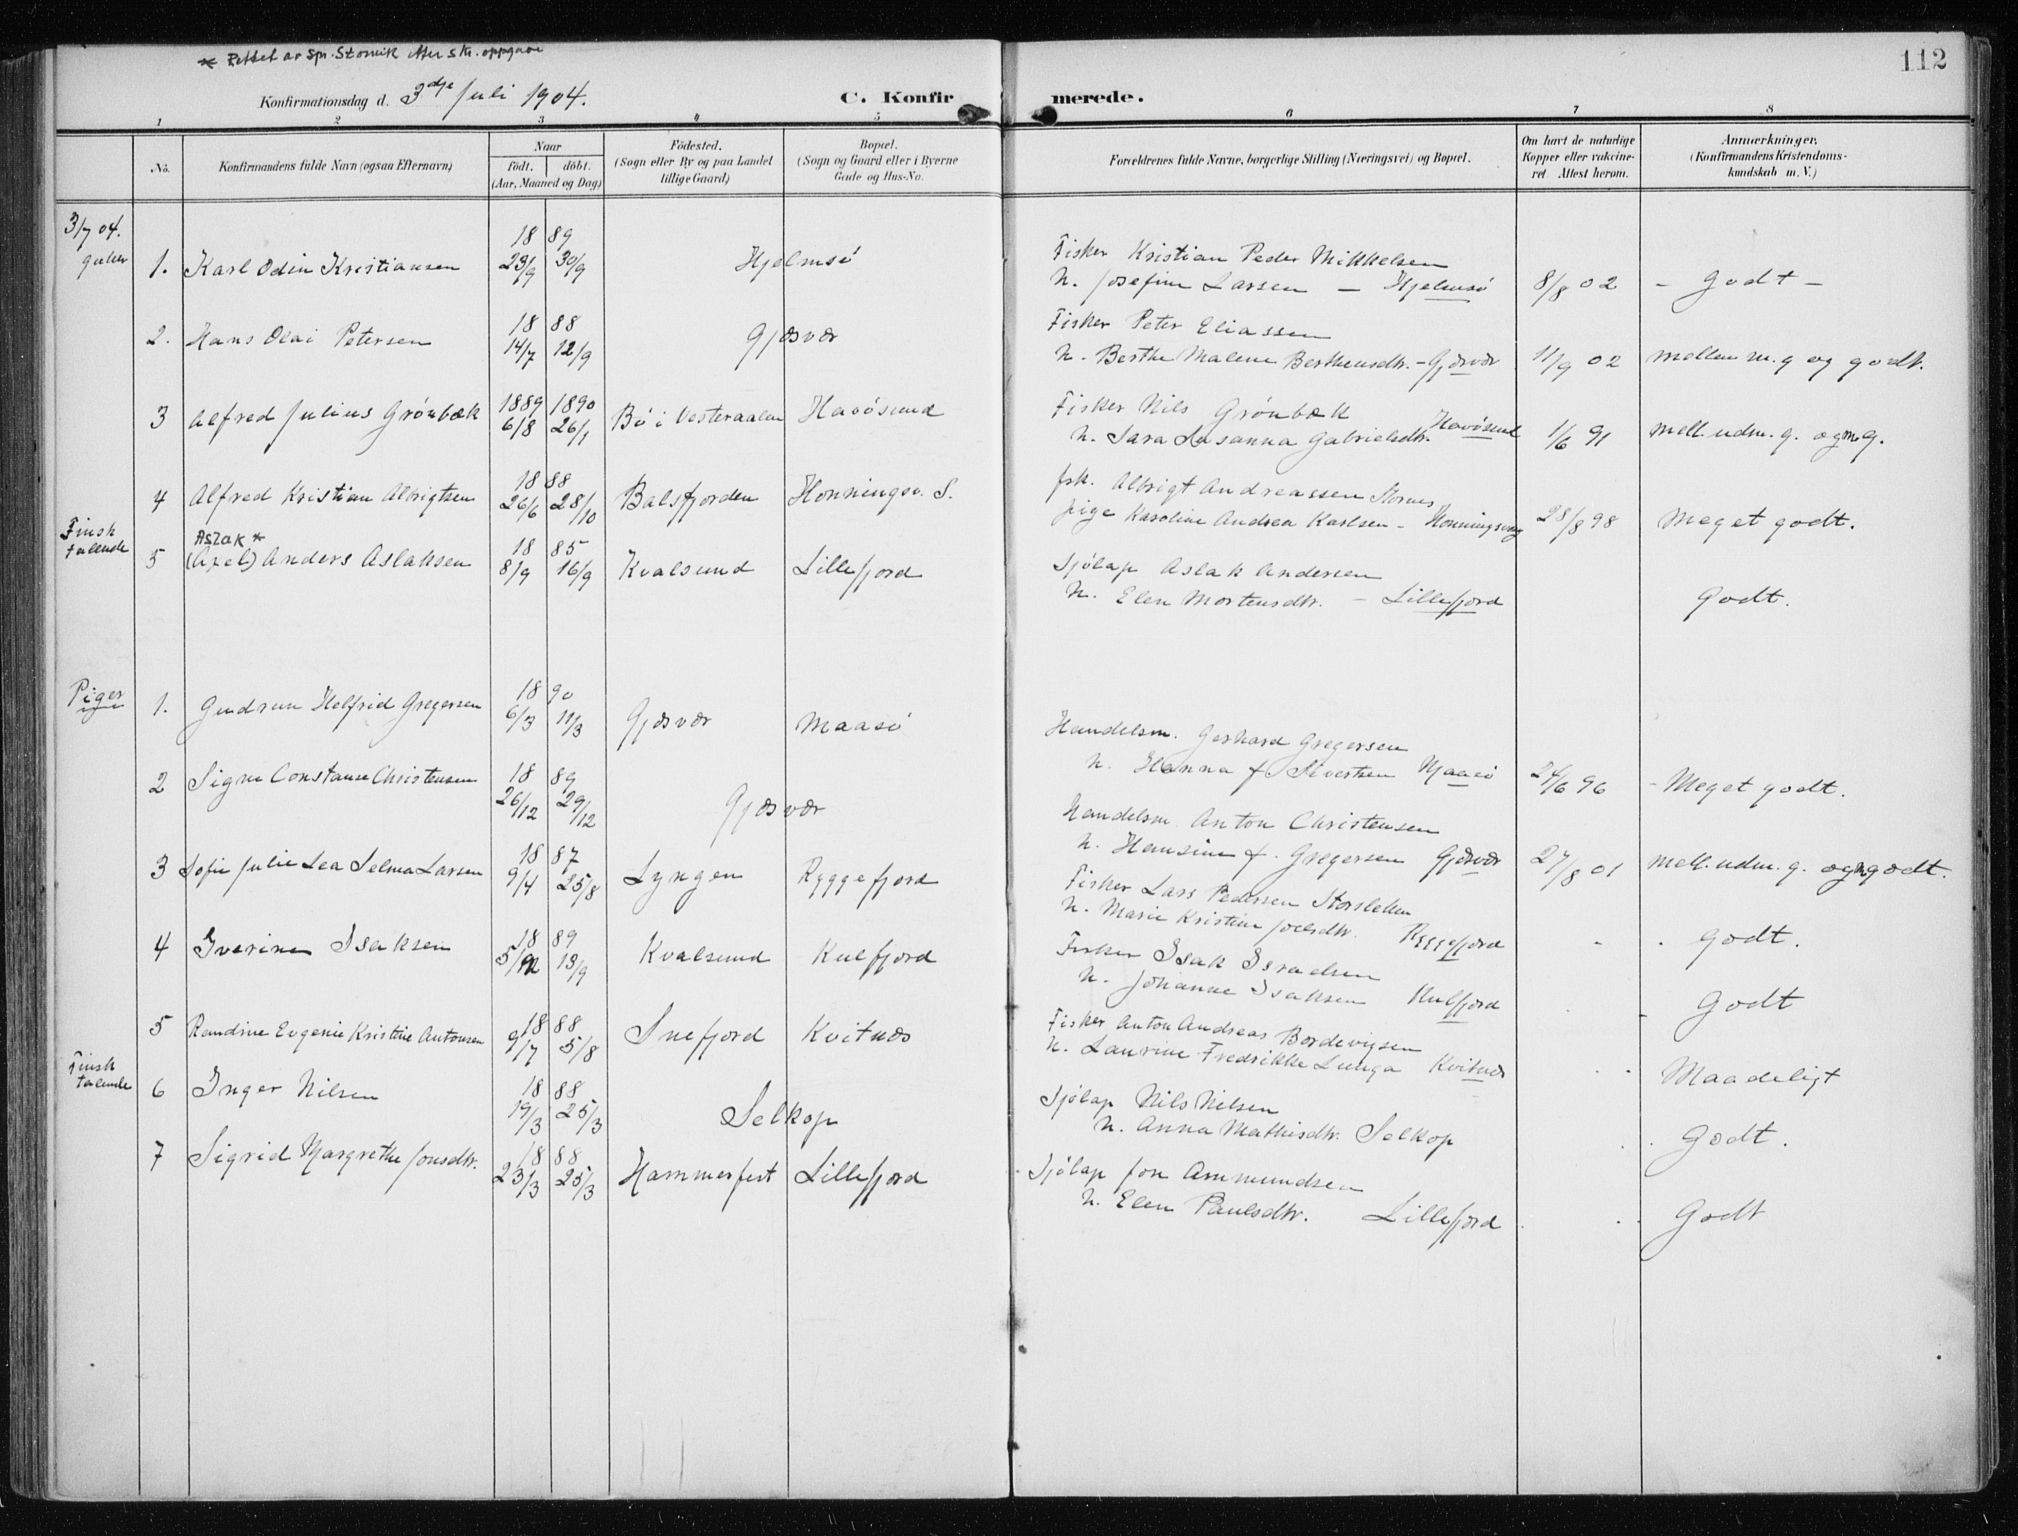 112
* Rettet av spr. Stomvik efter skr. oppgave
Konfirmationsdag d. 3dje Juli 1904.
C. Konfirmerede.
1 2 3 4 5 6 7 8
No.
Konfirmandens fulde Navn (ogsaa Efternavn)
Naar
födt. döbt.
(Aar, Maaned og Dag)
Födested.
(Sogn eller By og paa Landet
tillige Gaard)
Bopæl.
(Sogn og Gaard eller i Byerne
Gade og Hus-No.
Forældrenes fulde Navne, borgerlige Stilling (Næringsvei) og Bopæl.
Om havt de naturlige
Kopper eller vakcine-
ret. Attest herom.
Anmærkninger.
(Konfirmandens Kristendoms-
kundskab m. V.)
3/7 04.
gutter
1. Karl Odin Kristiansen 1889 23/9 30/9 Hjelmsö
Fisker Kristian Peder Mikkelsen
H. Josefine Larsen — Hjelmsö 8/8 02 - Godt -
2. Hans Olai Petersen 1888 14/7 12/9 Gjæsvær
Fisker Peter Eliassen
H. Berthe Malene Berthensdtr. - Gjæsvær 11/9 02 mellem m. g og godt.
3 Alfred Julius Grönbæk 1889 6/8 1890 26/1 Bö i Vesteraalen Havösund
Fisker Nils Grönbæk
H. Sara Susanna Gabrielsdtr. Havösund 1/6 91 mell. udm. g. og m g.
4 Alfred Kristian Albrigtsen 1888 26/6 28/10 Balsfjorden Honningsv. S.
fsk. Albrigt Andreassen Stornes,
pige Karoline Andrea Karlsen - Honningsvaag 28/8 98 Meget godt.
Finsk
talende
Aslak *
5 (Axel) Anders Aslaksen 1885 8/9 16/9 Kvalsund Lillefjord
Sjölap Aslak Andersen
H. Elen Mortensdtr. - Lillefjord Godt.
Piger
1. Gudrun Helfrid Gregersen 1890 6/3 11/3 Gjæsvær Maasö
Handelsm. Gerhard Gregersen
H. Hanna f. Sivertsen Maasö 24/6 96 - Meget godt.
2 Signe Constanse Christensen 1889 26/12 29/12 Gjæsvær
Handelsm. Anton Christensen
H. Hansine f. Gregersen Gjæsvær 27/8 01 mell. udm. g. og m godt.
3 Sofie Julie Lea Selma Larsen 1887 9/4 25/8 Lyngen Ryggefjord
Fisker Lars Pedersen Storsletten
H. Marie Kristine Joelsdtr. Ryggefjord Godt.
4 Iverine Isaksen 1889 13/9 Kvalsund Kulfjord
Fisker Isak Israelsen
H. Johanne Isaksen Kulfjord Godt
5 Randine Evgenie Kristine Antonsen 1888 9/7 5/8 Snefjord Kvitnæs
Fisker Anton Andreas Bordevigsen
H. Laurine Fredrikke Lunga Kvitnæs Maadeligt
Finsk
talende
6 Inger Nilsen 1888 19/3 25/3 Selkop
Sjölap Nils Nilsen
H. Anna Mathisdtr. Selkop Godt.
7 Sigrid Margrethe Jonsdtr. 1888 23/3 25/3 Hammerfest Lillefjord
Sjölap Jon Ammundsen
H. Elen Paulsdtr. Lillefjord Godt